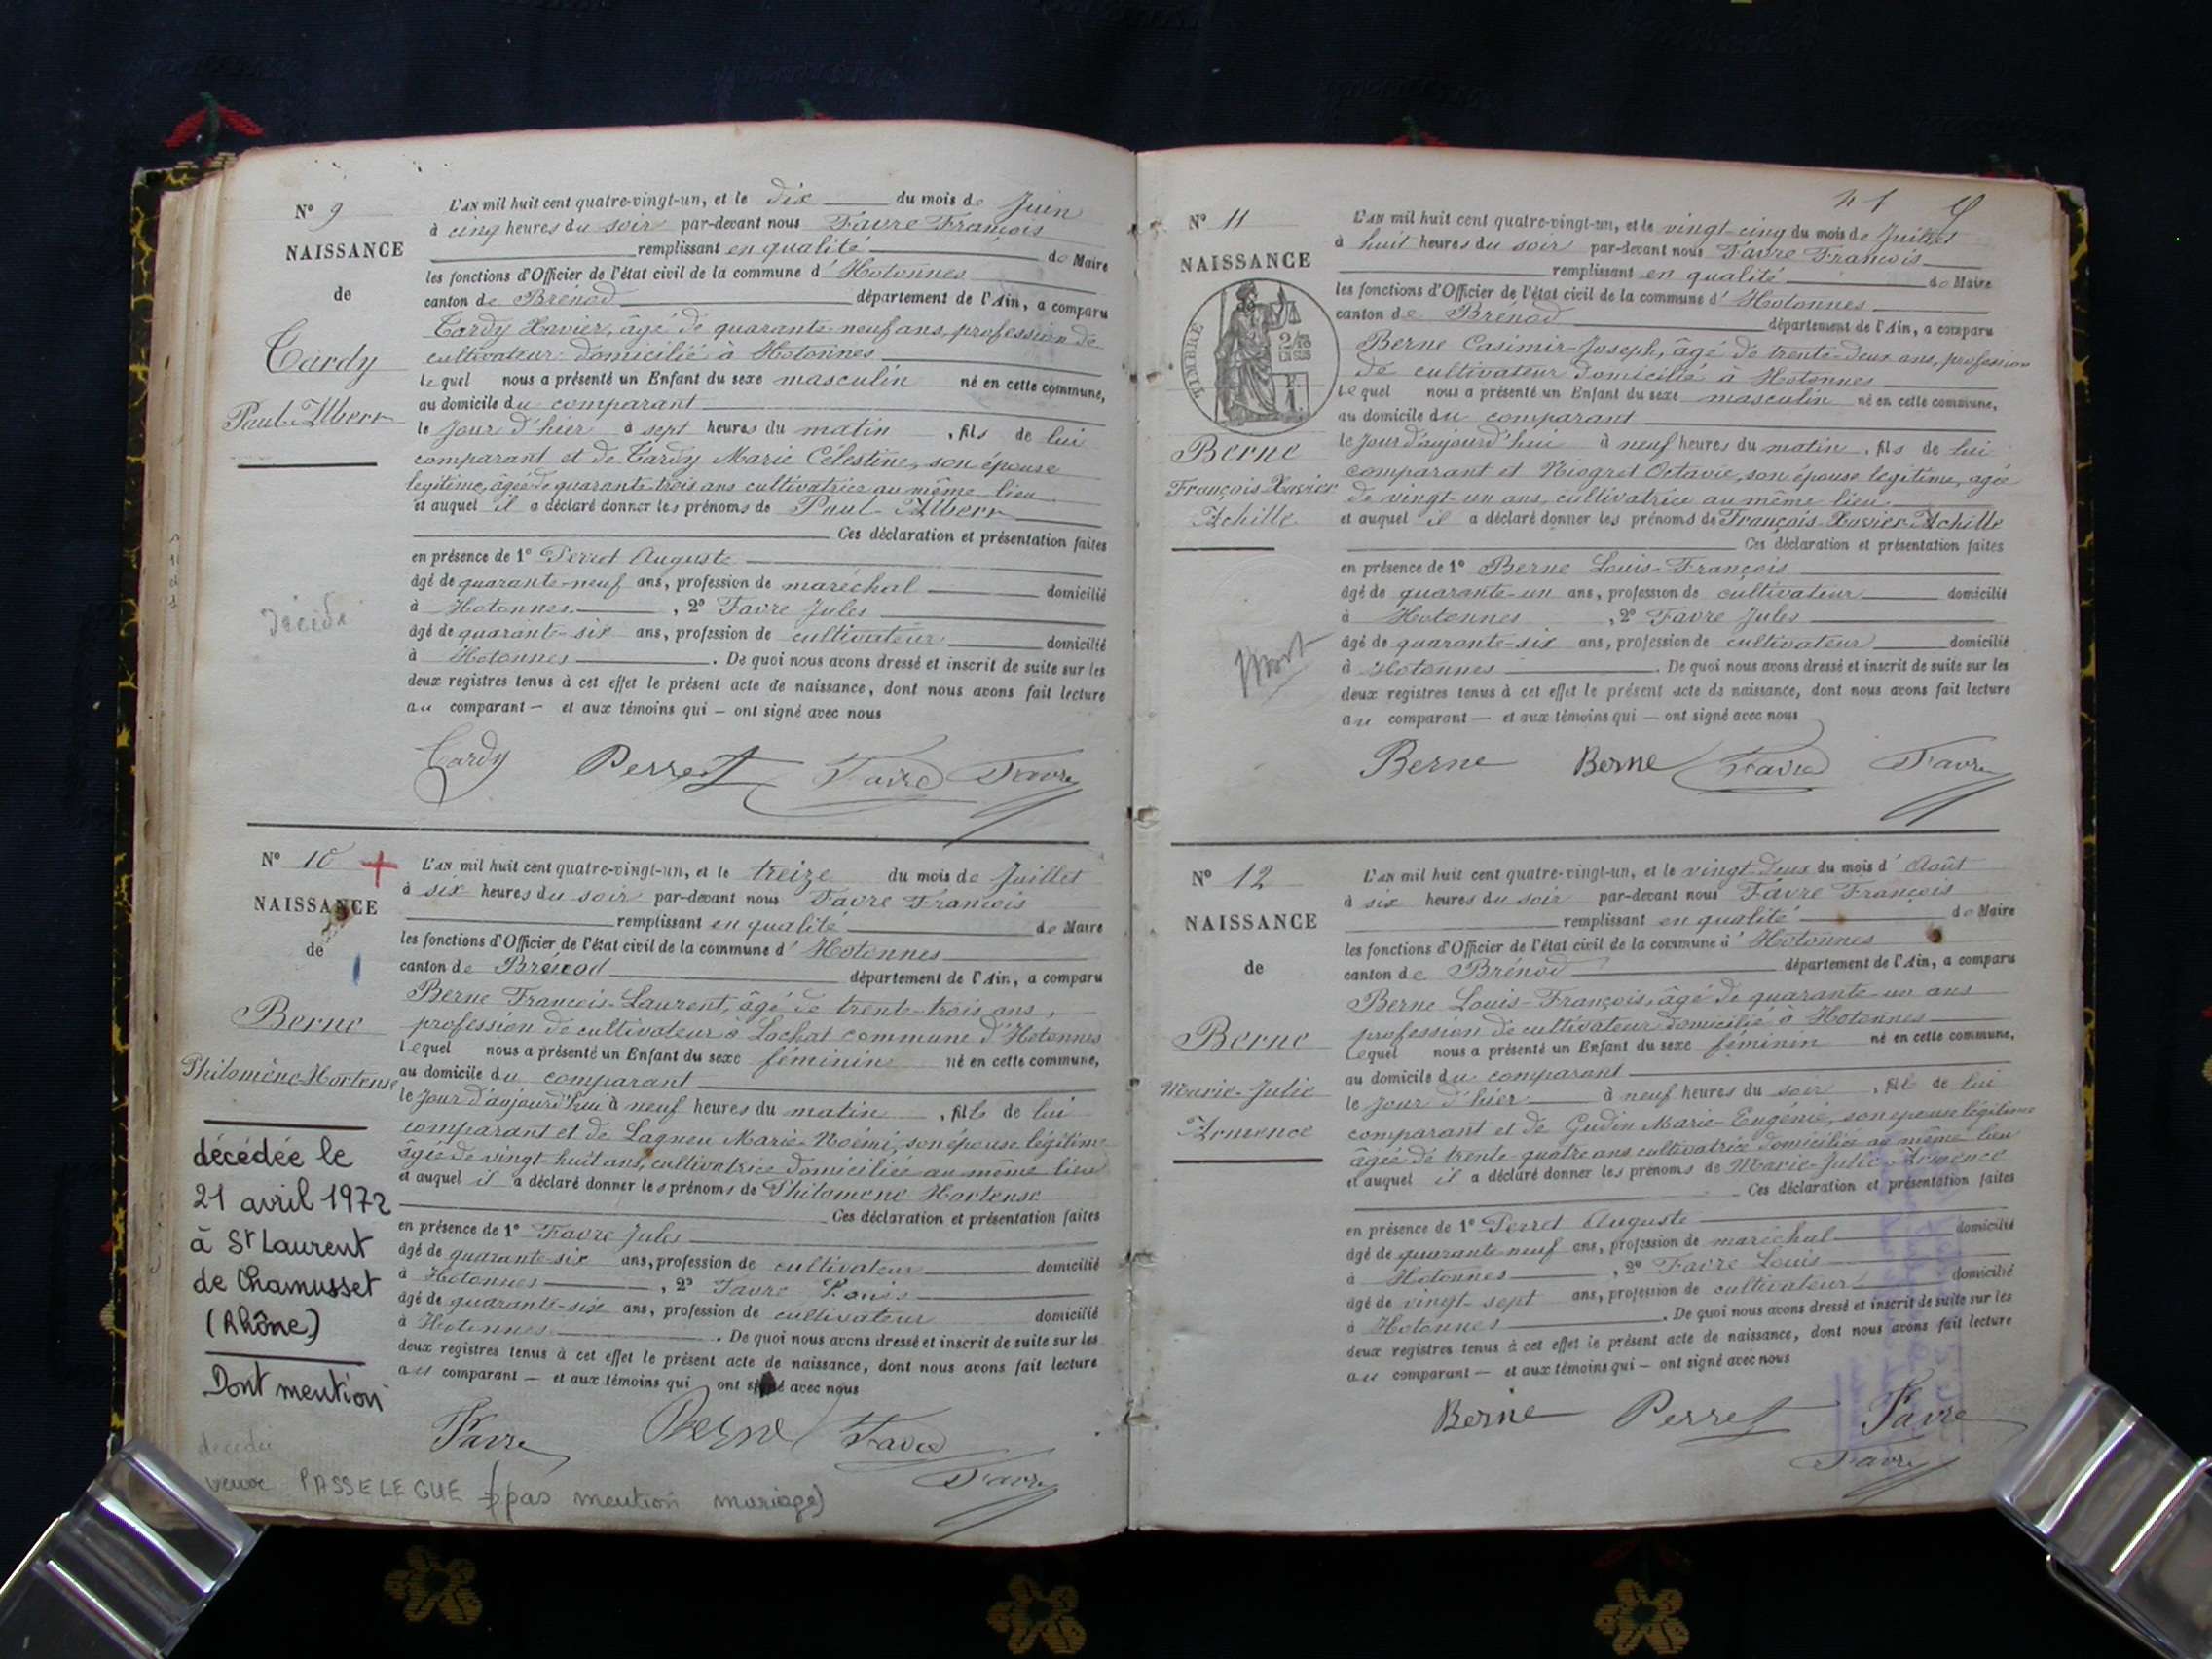 N° 9
NAISSANCE
de
Tardy
Paul-Albert
décédé
L'AN mil huit cent quatre-vingt-un, et le dix du mois de Juin
à cinq heures du soir par-devant nous Favre François
remplissant en qualité de Maire
les fonctions d'Officier de l'état civil de la commune d' Hotonnes
canton de Brénod département de l'Ain, a comparu
Tardy Xavier, âgé de quarante-neuf ans, profession de
cultivateur domicilié à Hotonnes
lequel nous a présenté un Enfant du sexe masculin né en cette commune,
au domicile du comparant
le jour d'hier à sept heures du matin, fils de lui
comparant et de Tardy Marie Célestine, son épouse
légitime, âgée de quarante trois ans cultivatrice au même lieu
et auquel il a déclaré donner les prénoms de Paul-Albert
Ces déclaration et présentation faites
en présence de 1° Perret Auguste
âgé de quarante-neuf ans, profession de maréchal domicilié
à Hotonnes, 2° Favre Jules
âgé de quarante-six ans, profession de cultivateur domicilié
à Hotonnes. De quoi nous avons dressé et inscrit de suite sur les
deux registres tenus à cet effet le présent acte de naissance, dont nous avons fait lecture
au comparant — et aux témoins qui — ont signé avec nous
Tardy Perret Favre Favre
N° 10 +
NAISSANCE
de
Berne
Philomène Hortense
décédée le
21 avril 1972
à St Laurent
de Chamusset
(Rhône)
Dont mention
décédée
veuve PASSELEGUE (pas mention mariage)
L'AN mil huit cent quatre-vingt-un, et le treize du mois de Juillet
à six heures du soir par-devant nous Favre François
remplissant en qualité de Maire
les fonctions d'Officier de l'état civil de la commune d' Hotonnes
canton de Brénod département de l'Ain, a comparu
Berne François-Laurent, âgé de trente-trois ans,
profession de cultivateur à Lochat commune d'Hotonnes
lequel nous a présenté un Enfant du sexe féminin né en cette commune,
au domicile du comparant
le jour d'aujourd'hui à neuf heures du matin, fille de lui
comparant et de Lagneu Marie-Noémi, son épouse légitime
âgée de vingt-huit ans, cultivatrice domiciliée au même lieu
et auquel il a déclaré donner les prénoms de Philomène Hortense
Ces déclaration et présentation faites
en présence de 1° Favre Jules
âgé de quarante-six ans, profession de cultivateur domicilié
à Hotonnes, 2° Favre Louis
âgé de quarante-six ans, profession de cultivateur domicilié
à Hotonnes. De quoi nous avons dressé et inscrit de suite sur les
deux registres tenus à cet effet le présent acte de naissance, dont nous avons fait lecture
au comparant — et aux témoins qui ont signé avec nous
Favre Berne Favre
Favre
41
N° 11
NAISSANCE
TIMBRE
Berne
François-Xavier
Achille
Mort
L'AN mil huit cent quatre-vingt-un, et le vingt-cinq du mois de Juillet
à huit heures du soir par-devant nous Favre François
remplissant en qualité de Maire
les fonctions d'Officier de l'état civil de la commune d' Hotonnes
canton de Brénod département de l'Ain, a comparu
Berne Casimir-Joseph, âgé de trente-deux ans, profession
de cultivateur domicilié à Hotonnes
lequel nous a présenté un Enfant du sexe masculin né en cette commune,
au domicile du comparant
le jour d'aujourd'hui à neuf heures du matin, fils de lui
comparant et Niogret Octavie, son épouse légitime, âgée
de vingt-un ans, cultivatrice au même lieu
et auquel il a déclaré donner les prénoms de François-Xavier-Achille
Ces déclaration et présentation faites
en présence de 1° Berne Louis-François
âgé de quarante-un ans, profession de cultivateur domicilié
à Hotonnes, 2° Favre Jules
âgé de quarante-six ans, profession de cultivateur domicilié
à Hotonnes. De quoi nous avons dressé et inscrit de suite sur les
deux registres tenus à cet effet le présent acte de naissance, dont nous avons fait lecture
au comparant — et aux témoins qui — ont signé avec nous
Berne Berne Favre Favre
N° 12
NAISSANCE
de
Berne
Marie-Julie
Armence
L'AN mil huit cent quatre-vingt-un, et le vingt-deux du mois d' Août
à six heures du soir par-devant nous Favre François
remplissant en qualité de Maire
les fonctions d'Officier de l'état civil de la commune d' Hotonnes
canton de Brénod département de l'Ain, a comparu
Berne Louis-François, âgé de quarante-un ans
profession de cultivateur domicilié à Hotonnes
Lequel nous a présenté un Enfant du sexe féminin né en cette commune,
au domicile du comparant
le jour d'hier à neuf heures du soir, fille de lui
comparant et de Gudin Marie-Eugénie, son épouse légitime
âgée de trente-quatre ans cultivatrice domiciliée au même lieu
et auquel il a déclaré donner les prénoms de Marie-Julie-Armence
Ces déclaration et présentation faites
en présence de 1° Perret Auguste
âgé de quarante-neuf ans, profession de maréchal domicilié
à Hotonnes, 2° Favre Louis
âgé de vingt-sept ans, profession de cultivateur domicilié
à Hotonnes. De quoi nous avons dressé et inscrit de suite sur les
deux registres tenus à cet effet le présent acte de naissance, dont nous avons fait lecture
au comparant — et aux témoins qui — ont signé avec nous
Berne Perret Favre
Favre